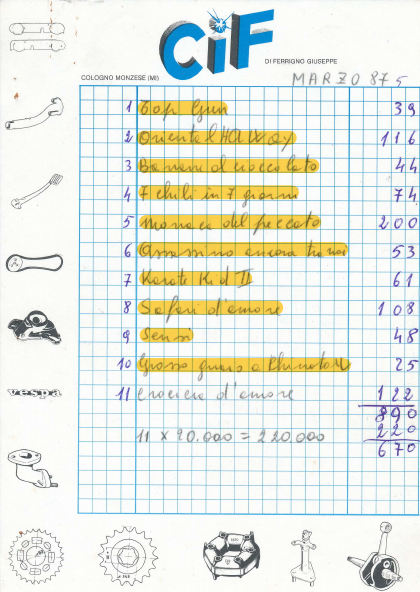 CiF
DI FERRIGNO GIUSEPPE
COLOGNO MONZESE (MI)
MARZO 87 5
1 Top Gun 39
2 Oriental HALWOY 116
3 Banane al cioccolato 44
4 7 chili in 7 giorni 74
5 monaca del peccato 200
6 Assassino ancora tra noi 53
7 Karate Kid II 61
8 Safari d'amore 108
9 Sensi 48
10 Grosso guaio a Chinatown 25
11 crociera d'amore 122
890
11 x 20.000 = 220.000 220
670
vespa